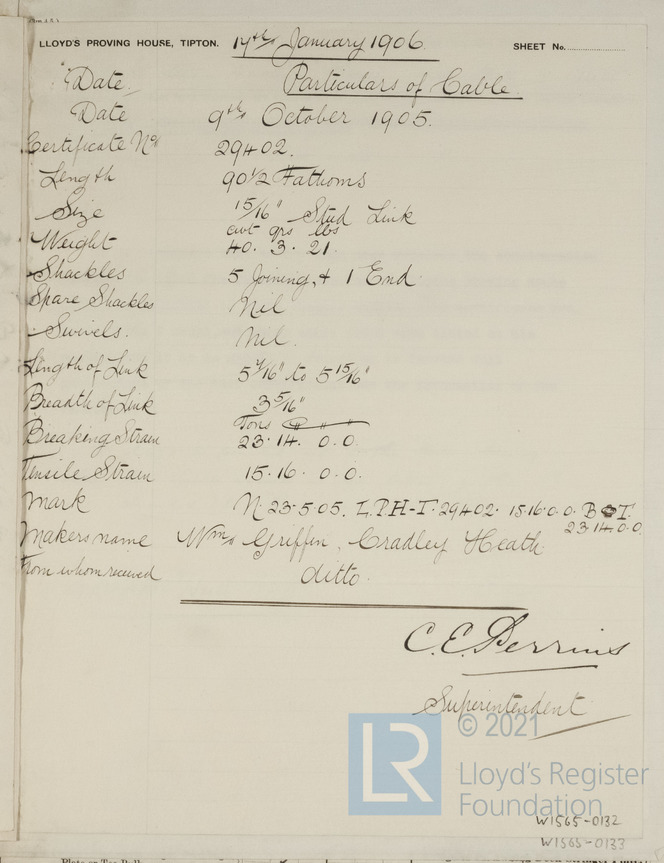 LLOYD'S PROVING HOUSE, TIPTON. 17th January 1906. SHEET No.
Date Particulars of Cable
Date 9th October 1905.
Certificate No 29402.
Length 90 1/2 Fathoms
Size 15/16" Stud Link
cwt qrs lbs
Weight 40. 3. 21
Shackles 5 Joining, & 1 End
Spare Shackles Nil
Swivels. Nil.
Length of Link to 5 15/16"
Breadth of Link 3 5/16"
Tons
Breaking Strain 23. 14. 0. 0.
Tensile Strain 15. 16. 0. 0.
Mark N. 23.5.05. L.P.H-T. 29402. 15.16.0.0. B T.
23.14.0.0
Makers name Wm Griffin, Cradley Heath
From whom received ditto.
C. E. Perrins
Superintendent
LR
© 2021
Lloyd's Register
Foundation
W1565-0132
W1565-0133